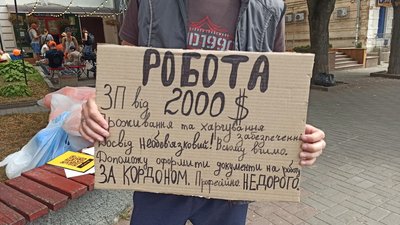 D1990
РОБОТА
ЗП від 2000$
Проживання та харчування
забезпечені
Досвід Необов'язковий! Виїзд
Допоможу оформити документи на роботу
ЗА КОРДОНОМ. Професійно НЕДОРОГО.